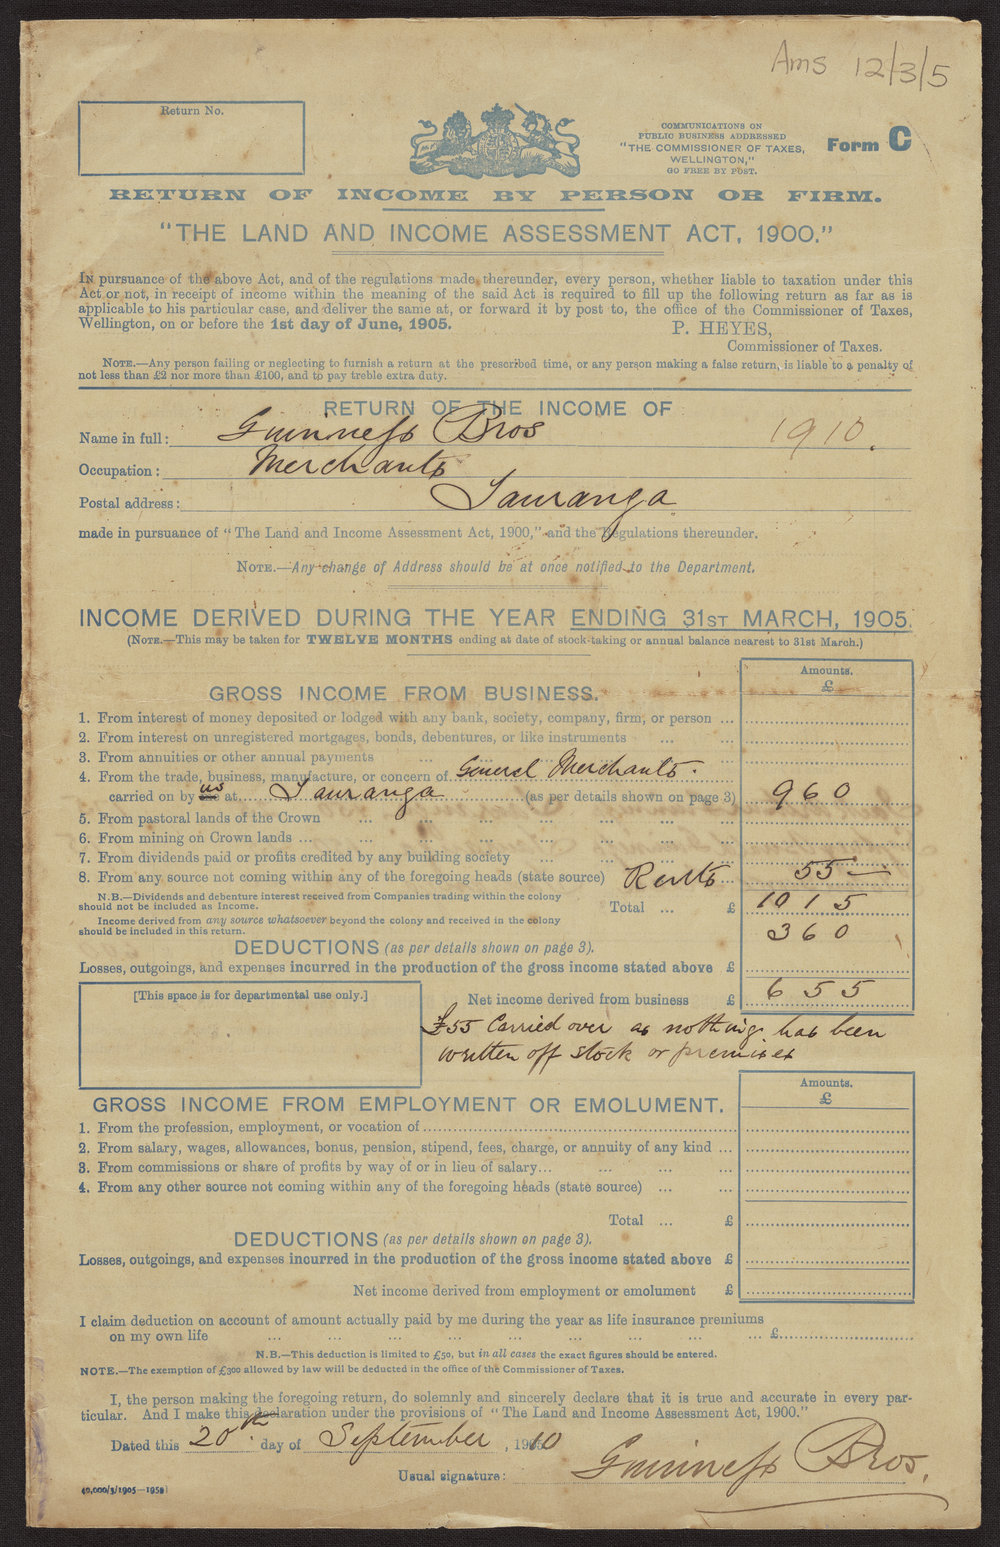 Ams 12/3/5
Return No.
COMMUNICATIONS ON
PUBLIC BUSINESS ADDRESSED
"THE COMMISSIONER OF TAXES,
WELLINGTON,"
GO FREE BY POST.
Form C
RETURN OF INCOME BY PERSON OR FIRM.
"THE LAND AND INCOME ASSESSMENT ACT, 1900."
IN pursuance of the above Act, and of the regulations made thereunder, every person, whether liable to taxation under this
Act or not, in receipt of income within the meaning of the said Act is required to fill up the following return as far as is
applicable to his particular case, and deliver the same at, or forward it by post to, the office of the Commissioner of Taxes,
Wellington, on or before the 1st day of June, 1905.
P. HEYES,
Commissioner of Taxes.
NOTE.—Any person failing or neglecting to furnish a return at the prescribed time, or any person making a false return, is liable to a penalty of
not less than £2 nor more than £100, and to pay treble extra duty.
RETURN OF THE INCOME OF
Name in full: Guinness Bros 1910.
Occupation: Merchants
Postal address: Tauranga
made in pursuance of "The Land and Income Assessment Act, 1900," and the Regulations thereunder.
NOTE.—Any change of Address should be at once notified to the Department.
INCOME DERIVED DURING THE YEAR ENDING 31ST MARCH, 1905.
(NOTE.—This may be taken for TWELVE MONTHS ending at date of stock-taking or annual balance nearest to 31st March.)
Amounts.
£
GROSS INCOME FROM BUSINESS.
1. From interest of money deposited or lodged with any bank, society, company, firm, or person ...
2. From interest on unregistered mortgages, bonds, debentures, or like instruments ... ...
3. From annuities or other annual payments ... ...
4. From the trade, business, manufacture, or concern of General Merchants.
carried on by us at Tauranga (as per details shown on page 3) 960
5. From pastoral lands of the Crown ... ... ... ... ... ... ...
6. From mining on Crown lands ... ... ... ... ... ... ...
7. From dividends paid or profits credited by any building society ... ... ... ...
8. From any source not coming within any of the foregoing heads (state source) Rents ... 55 —
N.B.—Dividends and debenture interest received from Companies trading within the colony
should not be included as Income.
Total ... £ 1015
Income derived from any source whatsoever beyond the colony and received in the colony
should be included in this return.
360
DEDUCTIONS (as per details shown on page 3).
Losses, outgoings, and expenses incurred in the production of the gross income stated above £
[This space is for departmental use only.]
Net income derived from business £ 655
£55 Carried over as nothing has been
written off stock or premises
Amounts.
£
GROSS INCOME FROM EMPLOYMENT OR EMOLUMENT.
1. From the profession, employment, or vocation of
2. From salary, wages, allowances, bonus, pension, stipend, fees, charge, or annuity of any kind ...
3. From commissions or share of profits by way of or in lieu of salary... ... ... ...
4. From any other source not coming within any of the foregoing heads (state source) ... ...
Total ... £
DEDUCTIONS (as per details shown on page 3).
Losses, outgoings, and expenses incurred in the production of the gross income stated above £
Net income derived from employment or emolument £
I claim deduction on account of amount actually paid by me during the year as life insurance premiums
on my own life ... ... ... ... ... ... ... ... ... £
N.B.—This deduction is limited to £50, but in all cases the exact figures should be entered.
NOTE.—The exemption of £300 allowed by law will be deducted in the office of the Commissioner of Taxes.
I, the person making the foregoing return, do solemnly and sincerely declare that it is true and accurate in every par-
ticular. And I make this declaration under the provisions of "The Land and Income Assessment Act, 1900."
Dated this 20th day of September, 1910
Usual signature: Guinness Bros.